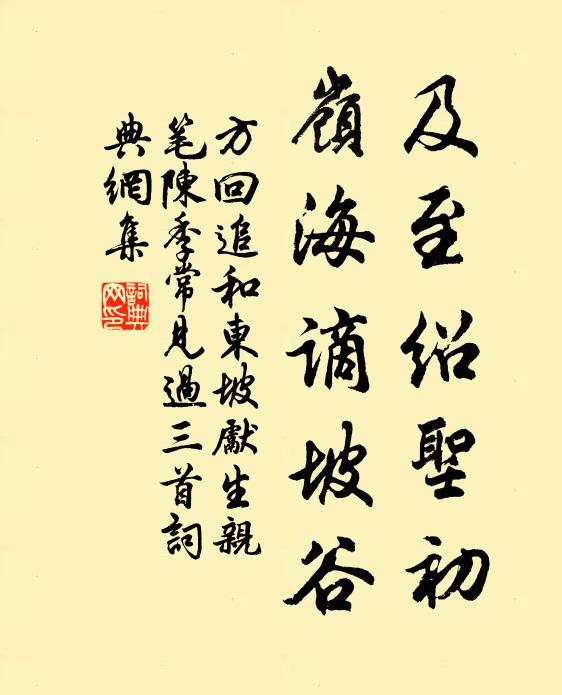 及至紹聖初
嶺海謫坡谷
方回追和東坡獻生親
笔陳季常見過三首詞
典網集
詞典
网印